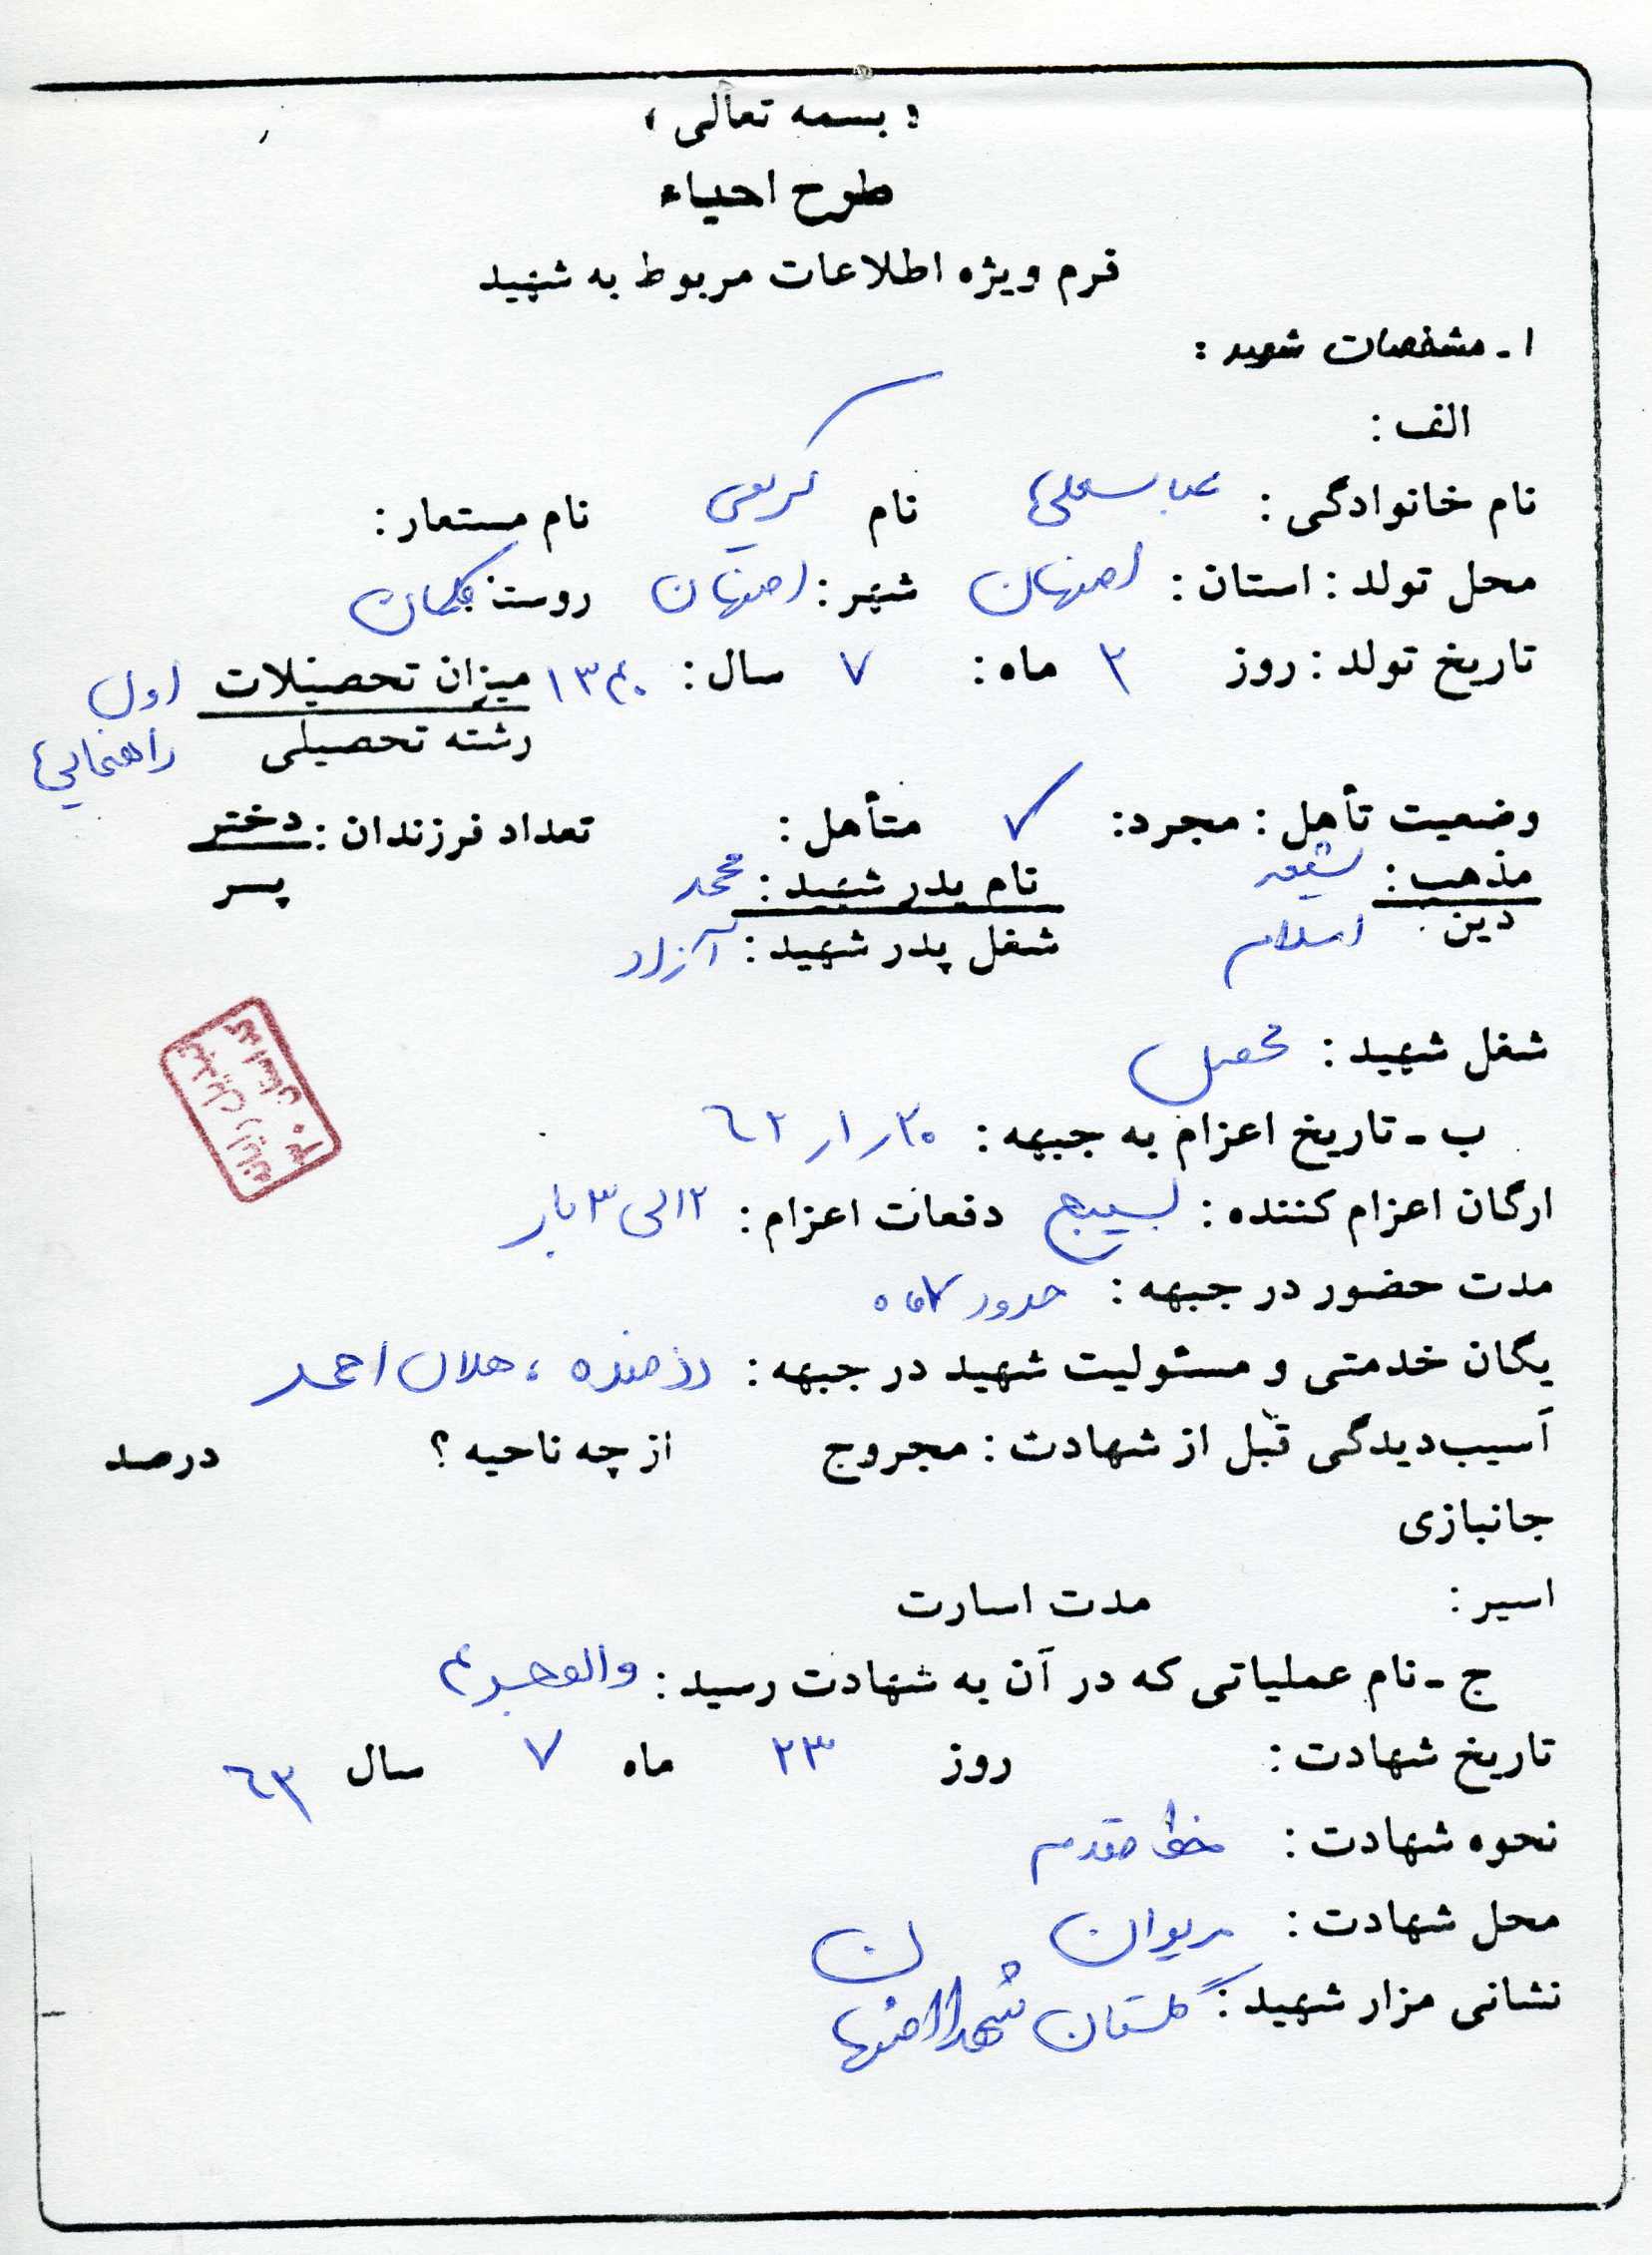 « بسمه تعالی »
طرح احیاء
فرم ویژه اطلاعات مربوط به شهید
۱ - مشخصات شهید :
الف :
نام خانوادگی : عباسعلی نام کریمی نام مستعار :
محل تولد : استان : اصفهان شهر : اصفهان روستا
تاریخ تولد : روز ۲ ماه : ۷ سال : ۱۳۴۰ میزان تحصیلات اول
رشته تحصیلی راهنمایی
وضعیت تأهل : مجرد : ✓ متأهل : تعداد فرزندان : دختر
پسر
مذهب : شیعه نام پدر شهید : محمد
دین : اسلام شغل پدر شهید : آزاد
شغل شهید : محصل
ب - تاریخ اعزام به جبهه : ۲۰ر۱ر۶۲
ارگان اعزام کننده : بسیج دفعات اعزام : ۲ الی ۳ بار
مدت حضور در جبهه : حدود ۷ ماه
یگان خدمتی و مسئولیت شهید در جبهه : رزمنده ، هلال احمر
آسیب‌دیدگی قبل از شهادت : مجروح از چه ناحیه ؟ درصد
جانبازی
اسیر : مدت اسارت
ج - نام عملیاتی که در آن به شهادت رسید : والفجر ۴
تاریخ شهادت : روز ۲۳ ماه ۷ سال ۶۲
نحوه شهادت : خط مقدم
محل شهادت : مریوان
نشانی مزار شهید : گلستان شهدا اصفهان